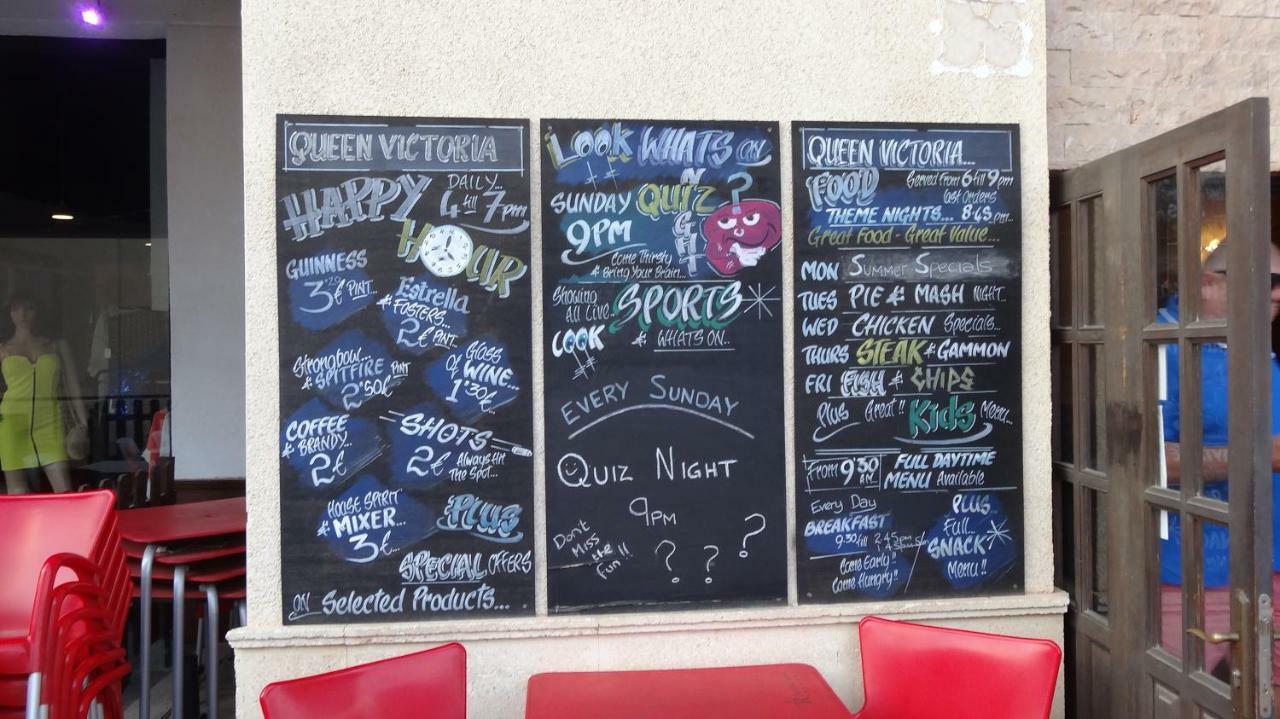 QUEEN VICTORIA
HAPPY
DAILY...
4 till 7pm
HOUR
GUINNESS
3'20€ PINT...
Estrella
& FOSTERS...
2€ PINT...
Strongbow...
& SPITFIRE PINT
2'50€
Glass
of WINE...
1'30€...
COFFEE
& BRANDY...
2€
SHOTS
2€ Always Hit
The Spot...
House Spirit
& MIXER...
3€...
Plus
SPECIAL OFFERS
ON Selected Products...
LOOK WHATS ON
SUNDAY QUIZ
NIGHT
9PM
Come Thirsty
& Bring Your Brain...
Showing
All Live..
SPORTS
LOOK
& WHATS ON..
EVERY SUNDAY
QUIZ NIGHT
9PM
Don't
Miss
the
fun!!
? ? ?
QUEEN VICTORIA...
FOOD
Served From 6 till 9pm
last Orders
THEME NIGHTS... 8:45pm..
Great Food - Great Value...
MON Summer Specials
TUES PIE & MASH NIGHT...
WED CHICKEN Specials...
THURS STEAK & GAMMON
FRI FISH & CHIPS
Plus Great!! Kids Menu...
From 9'30 AM
FULL DAYTIME
MENU Available
Every Day
BREAKFAST
9.30 till 2.45pm
Come Early!!
Come Hungry!!
PLUS
Full...
SNACK
Menu!!